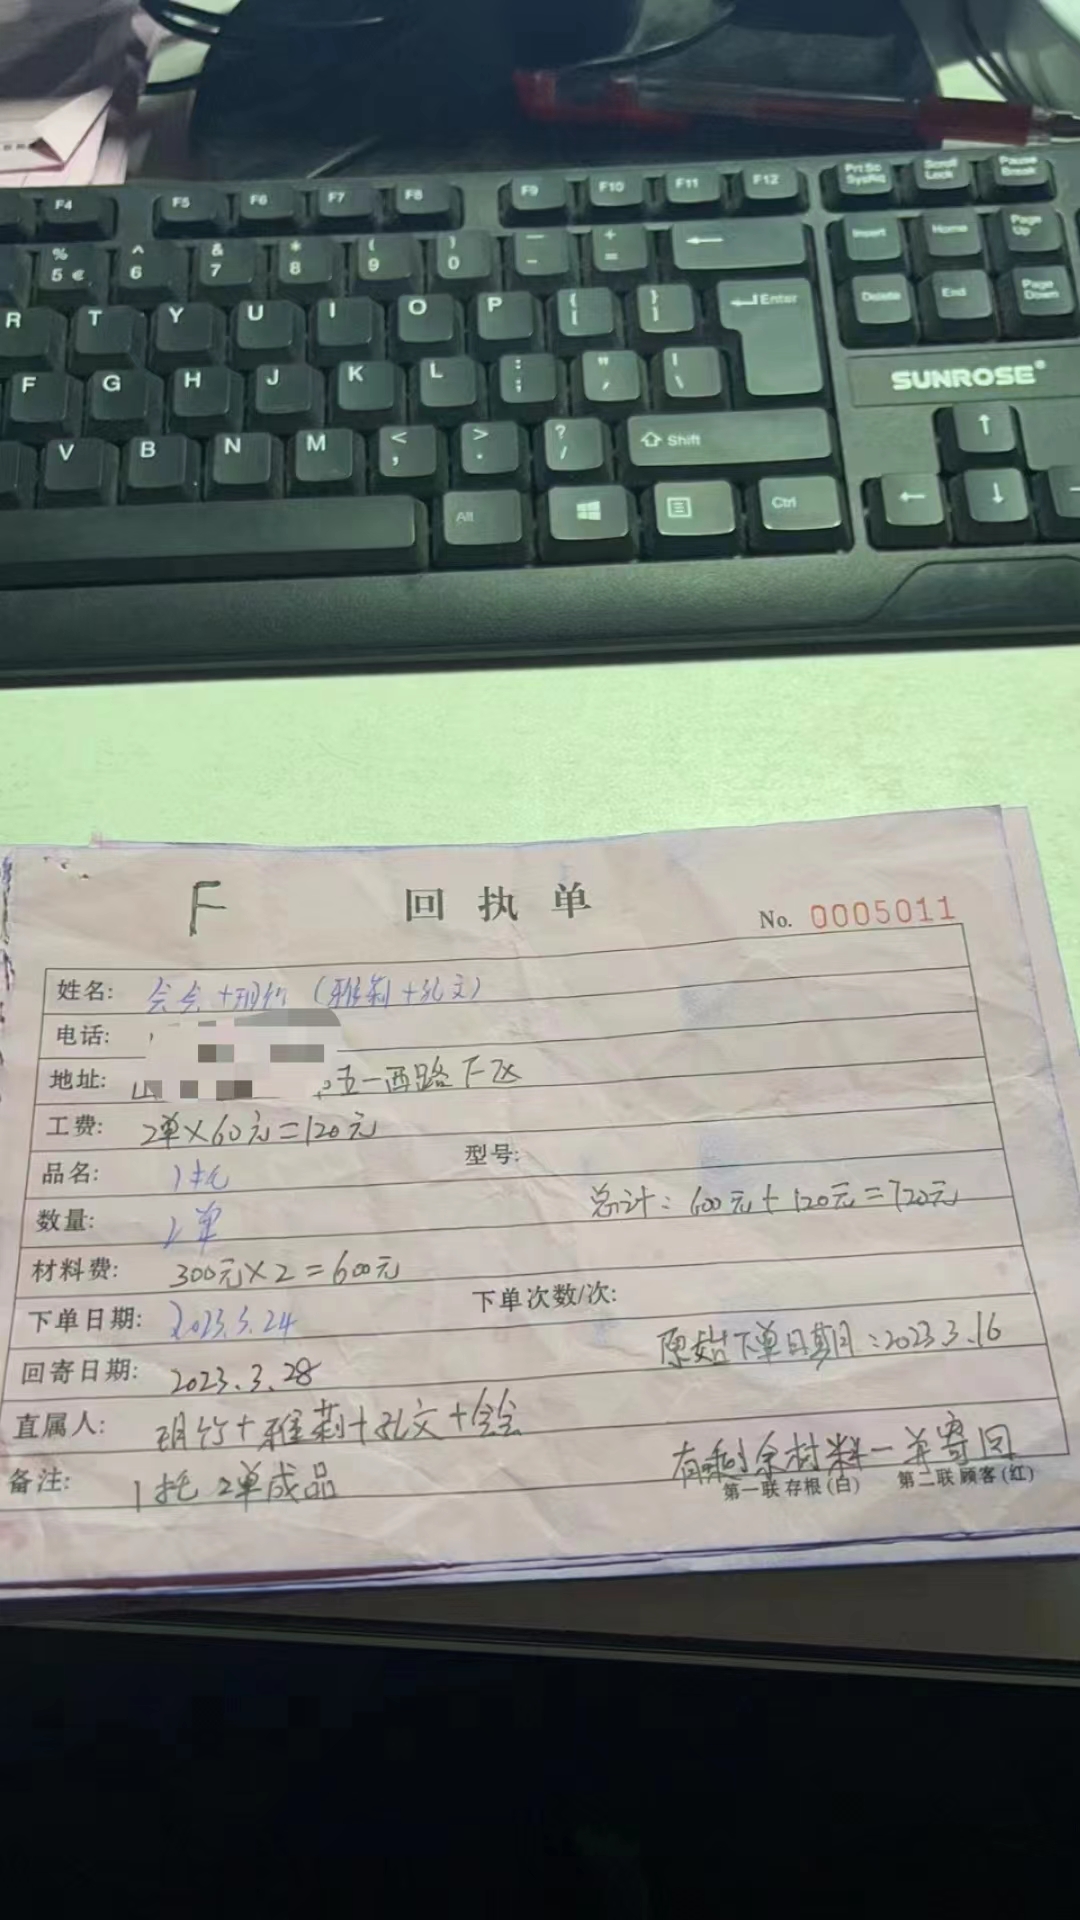 Prt Sc SysRq
Scroll Lock
Pause Break
F4 F5 F6 F7 F8 F9 F10 F11 F12
% 5 € ^ 6 & 7 * 8 ( 9 ) 0 — - + =
Insert Home Page Up
R T Y U I O P { [ } ] Enter
Delete End Page Down
F G H J K L : ; " ' | \
SUNROSE®
V B N M < , > . ? / Shift
Alt Ctrl
F
回执单
No. 0005011
姓名: 会会+明竹(雅莉+孔文)
电话:
地址: 山 五一西路下区
工费: 2单×60元=120元
型号:
品名: 1托
数量: 2单
总计: 600元+120元=720元
材料费: 300元×2=600元
下单日期: 2023.3.24
下单次数/次:
回寄日期: 2023.3.28
原始下单日期:2023.3.16
直属人: 明竹+雅莉+孔文+会会
备注: 1托 2单成品
有剩余材料一并寄回
第一联 存根(白) 第二联 顾客(红)